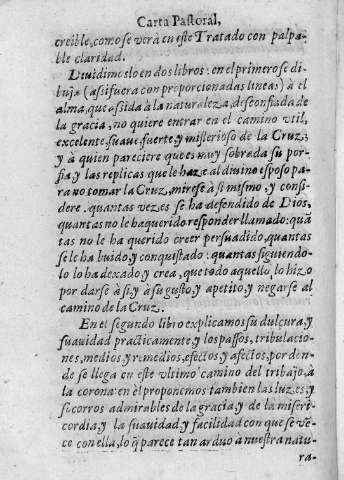 Carta Pastoral,
creible, como se verà en este Tratado con palpa-
ble claridad.
Diuidimoslo en dos libros: en el primero se di-
buja (assi fuera con proporcionadas lineas) à el
alma, que assida à la naturaleza, desconfiada de
la gracia, no quiere entrar en el camino vtil,
excelente, suaue, fuerte, y misterioso de la Cruz;
y à quien pareciere que es muy sobrada su por-
fia, y las replicas que le haze al diuino esposo pa-
ra no tomar la Cruz, mirese à si mismo, y consi-
dere quantas vezes se ha defendido de Dios,
quantas no le ha querido responder llamado: quã
tas no le ha querido creer persuadido, quantas
se le ha huido, y conquistado: quantas siguiendo-
lo lo ha dexado, y crea, que todo aquello, lo hizo
por darse à si, y à su gusto, y apetito, y negarse al
camino de la Cruz.
En el segundo libro explicamos su dulçura, y
suauidad practicamente, y los passos, tribulacio-
nes, medios, y remedios, efectos, y afectos, por don-
de se llega en este vltimo camino del trabajo, à
la corona: en èl proponemos tambien las luzes, y
socorros admirables de la gracia, y de la miseri-
cordia, y la suauidad, y facilidad con que se vẽ-
ce con ella, lo q̃ parece tan arduo a nuestra natu-
ra-